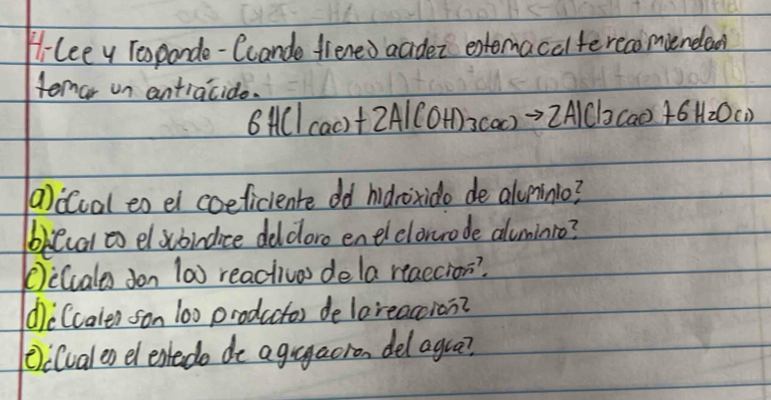 4.-Lee y responde - Cuando tienes acidez estomacal te recomiendan
tomar un antiácido.
6HCl(ac) + 2Al(OH)3(ac) → 2AlCl3(ac) + 6H2O(l)
a) ¿Cual es el coeficiente del hidróxido de aluminio?
b) ¿Cual es el subindice del cloro en el cloruro de aluminio?
c) ¿Cuales son los reactivos de la reacción?
d) ¿Cuales son los productos de la reacción?
e) ¿Cual es el estado de agregacion del agua?